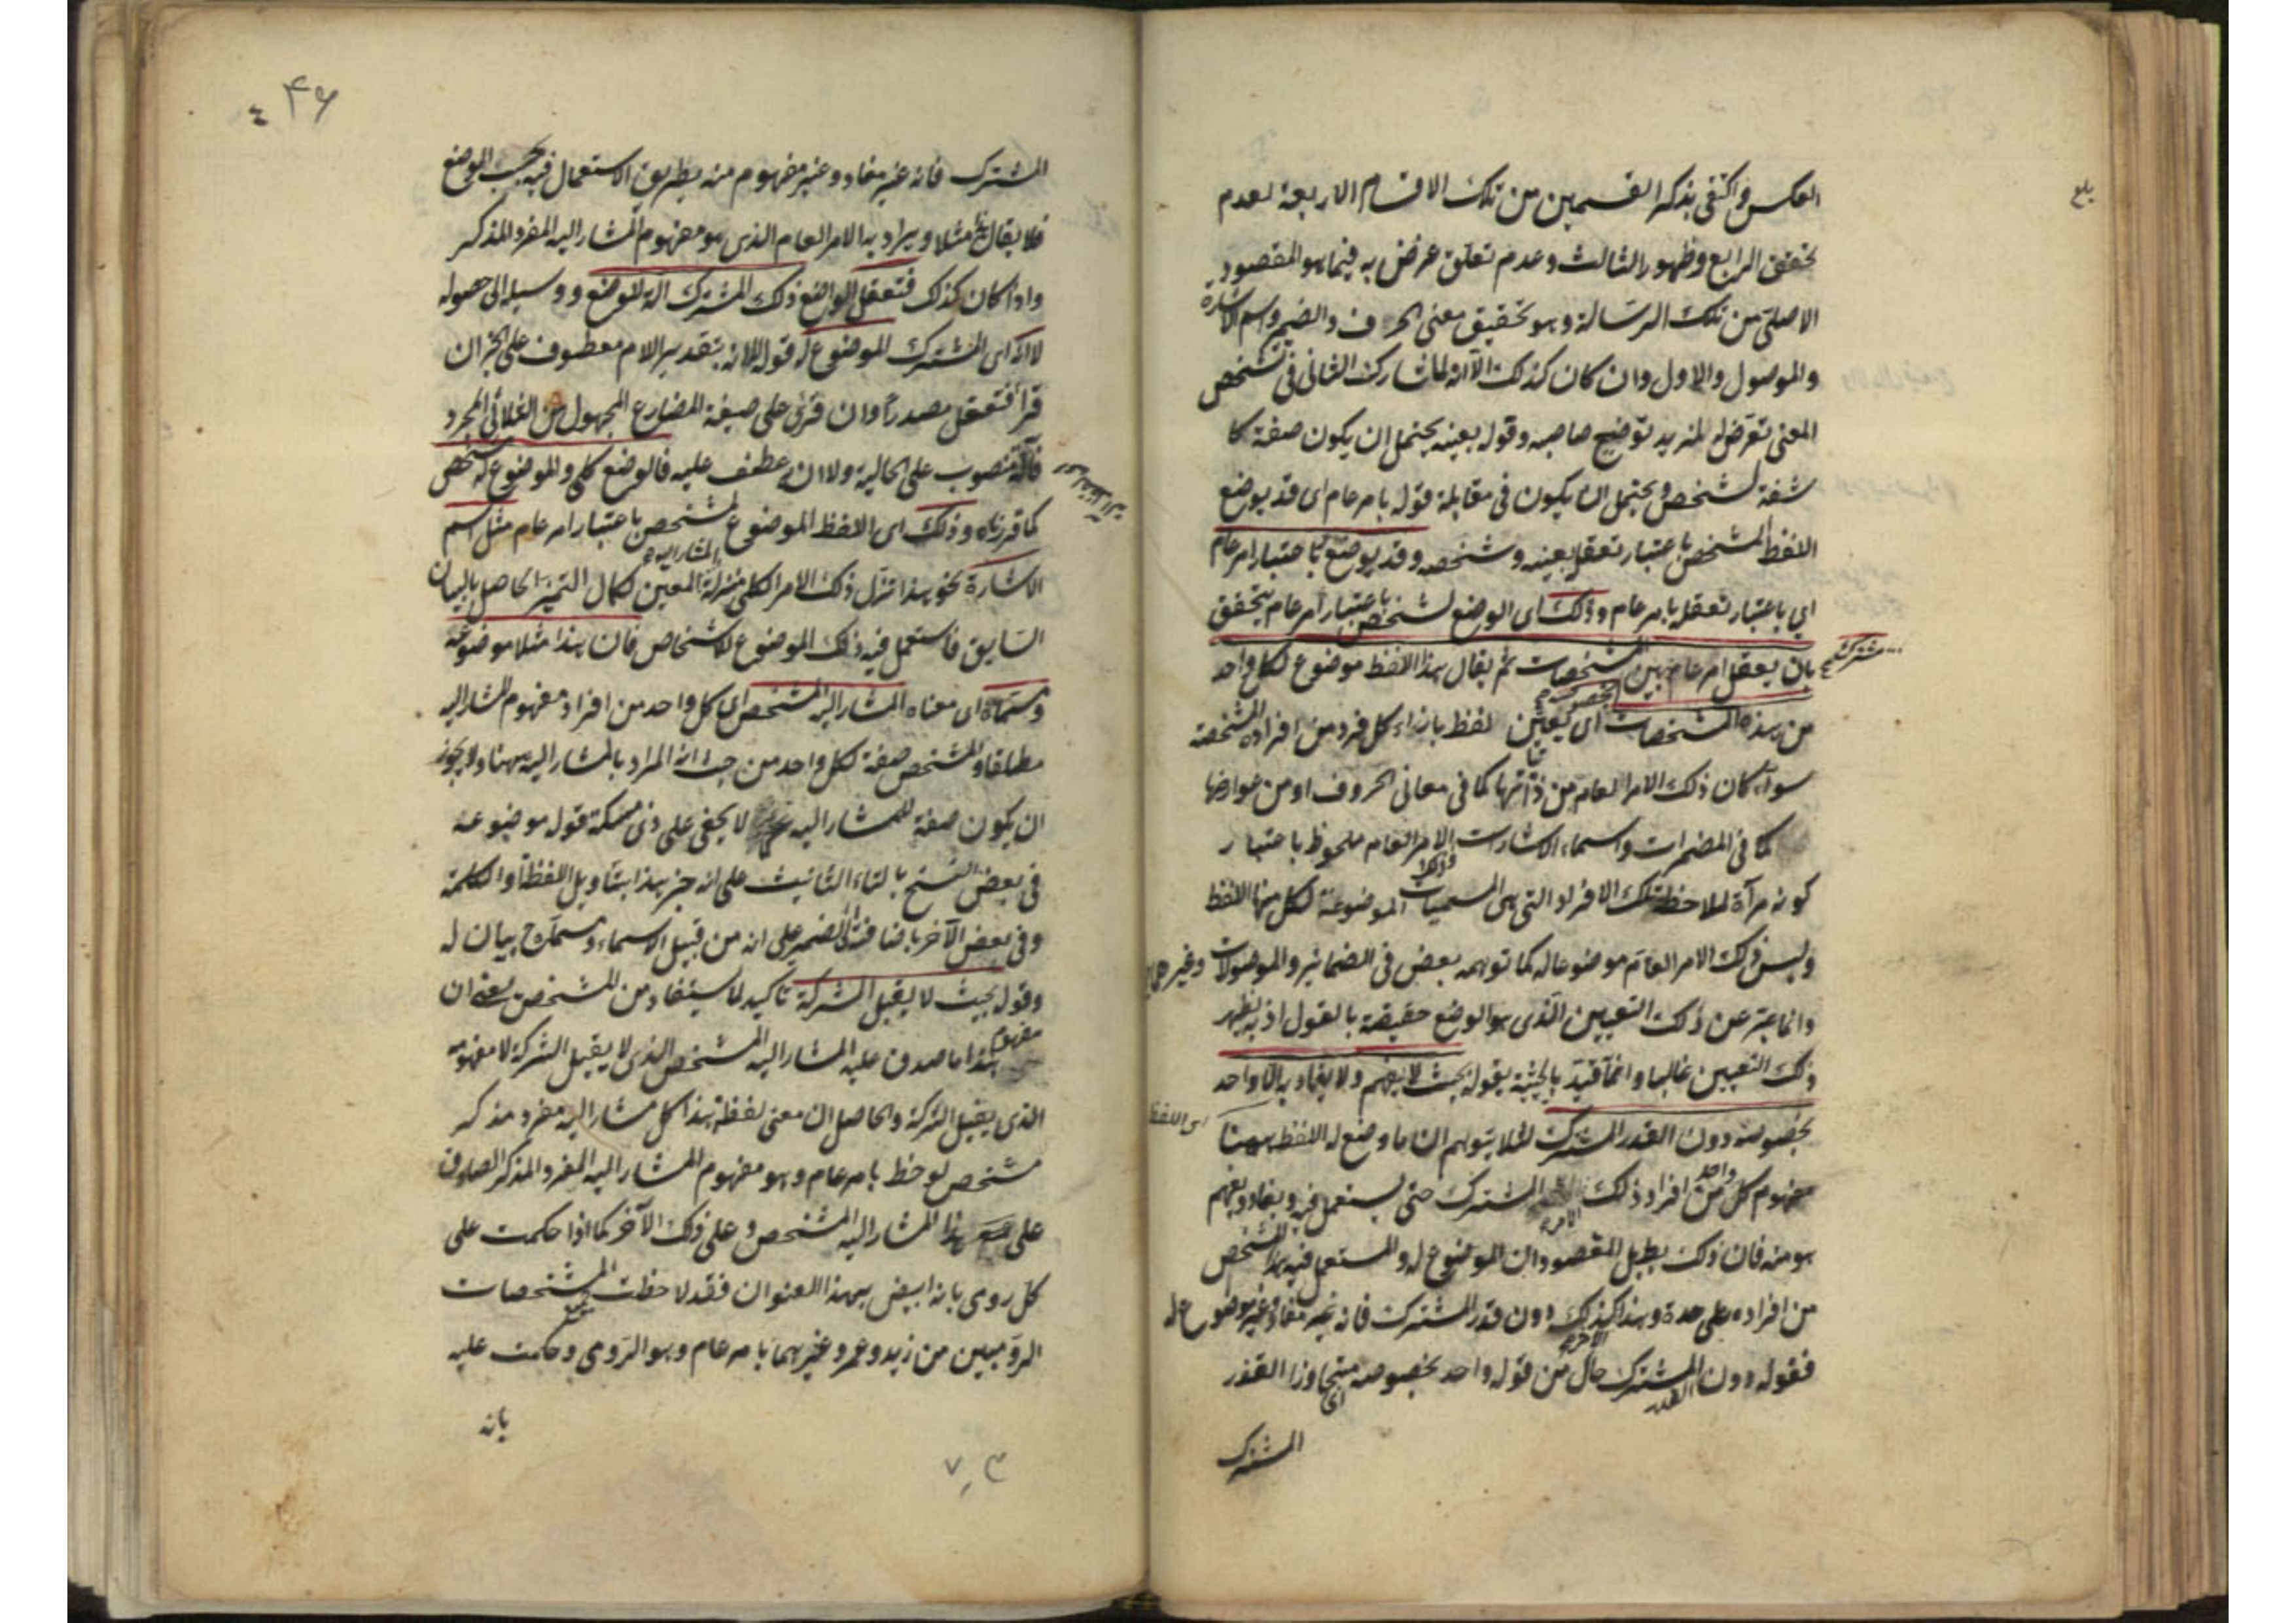 بلغ
العكس واكتفى بذكر القسمين من تلك الاقسام الاربعة لعدم
تحقق الرابع وظهور الثالث وعدم تعلق غرض به فيما هو المقصود
الاصلى من تلك الرسالة وهو تحقيق معنى الحرف والضمير واسم الاشارة
والموصول والاول وان كان كذلك الا انه لما شارك الثانى فى تشخص
المعنى تعرض له لمزيد توضيح صاحبه وقوله بعينه يحتمل ان يكون صفة كا
شفة لمشخص ويحتمل ان يكون فى مقابلة قوله بامر عام اى قد يوضع
اللفظ لمشخص باعتبار تعقله بعينه وشخصه وقد يوضع له باعتبار امر عام
اي باعتبار تعقله بامر عام وذلك اى الوضع لمشخص باعتبار امر عام يتحقق
بان يعقل امر عام بين المشخصات ثم يقال هذا اللفظ موضوع لكل واحد
مشترك صح
من هذه المشخصات اى يعين لفظ بازاء كل فرد من افراده المشخصة
سواء كان ذلك الامر العام من ذاتياتها كما فى معانى الحروف او من عوارضها
كما فى المضمرات واسماء الاشارات والامر العام ملحوظ باعتبار
كونه مرآة لملاحظة تلك الافراد التى هى المسميات الموضوعة لكل منها اللفظ
وليس ذلك الامر العام موضوعا له كما توهمه بعض فى الضمائر والموصولات وغيرهما
وانما عبر عن ذلك التعيين الذى هو الوضع حقيقة بالقول اذ به يظهر
ذلك التعيين غالبا وانما قيد بالحيثية بقوله بحيث لا يفهم ولا يفاد به الا واحد
اى اللفظ
بخصوصه دون القدر المشترك لئلا يتوهم ان ما وضع له اللفظ ههنا
مفهوم كل واحد من افراد ذلك الامر المشترك حتى يستعمل فيه ويفاد ويفهم
هو منه فان ذلك يبطل المقصود ان الموضوع له والمستعمل فيه هذا المشخص
من افراده على حدة وهذا كذلك دون قدر المشترك فانه غير مفاد وغير موضوع له
فقوله دون القدر المشترك حال من قوله واحد بخصوصه اى متجاوزا القدر
المشترك
۴۶
المشترك فانه غير مفاد وغير مفهوم منه بطريق الاستعمال فيه بحسب الوضع
فلا يقال هذا مثلا ويراد به الامر العام الذى هو مفهوم المشار اليه المفرد المذكر
واذا كان كذلك فتعقل الواضع ذلك المشترك آلة للوضع ووسيلة الى حصوله
لا انه اى المشترك الموضوع له قوله لا انه بتقدير اللام معطوف على الخبر ان
قرأ فتعقل مصدرا وان قرئ على صيغة المضارع المجهول من الثلاثى المجرد
فآلة منصوب على الحالية ولا انه عطف عليه فالوضع كلى والموضوع له مشخص
كما قررناه وذلك اى اللفظ الموضوع لمشخص باعتبار امر عام مثل اسم
الاشارة نحو هذا تنزل ذلك الامر الكلى منزلة المشار اليه المعين لكمال التميز الحاصل بالبيان
السابق فاستعمل فيه ذلك الموضوع للاشخاص فان هذا مثلا موضوعه
ومسماه اى معناه المشار اليه المشخص اى كل واحد من افراد مفهوم المشار اليه
مطلقا والمشخص صفة لكل واحد من حيث انه المراد بالمشار اليه ههنا ولا يجوز
ان يكون صفة للمشار اليه لا يخفى على ذى مسكة قوله موضوعه
فى بعض النسخ بالتاء التانيث على انه خبر هذا بتاويل اللفظة او الكلمة
وفى بعض الآخر باضافته الى الضمير على انه من قبيل الاسماء ومسماه ح بيان له
وقوله بحيث لا يقبل الشركة تاكيد لما يستفاد من المشخص يعنى ان
مفهوم هذا ما صدق عليه المشار اليه المشخص الذى لا يقبل الشركة لا مفهومه
الذى يقبل الشركة والحاصل ان معنى لفظة هذا كل مشار اليه مفرد مذكر
مشخص لوحظ بامر عام وهو مفهوم المشار اليه المفرد المذكر الصادق
على هذا المشار اليه المشخص وعلى ذلك الآخر كما اذا حكمت على
كل رومى بانه ابيض بهذا العنوان فقد لاحظت جميع المشخصات
الروميين من زيد وعمرو وغيرهما بامر عام وهو الرومى وحكمت عليه
بانه